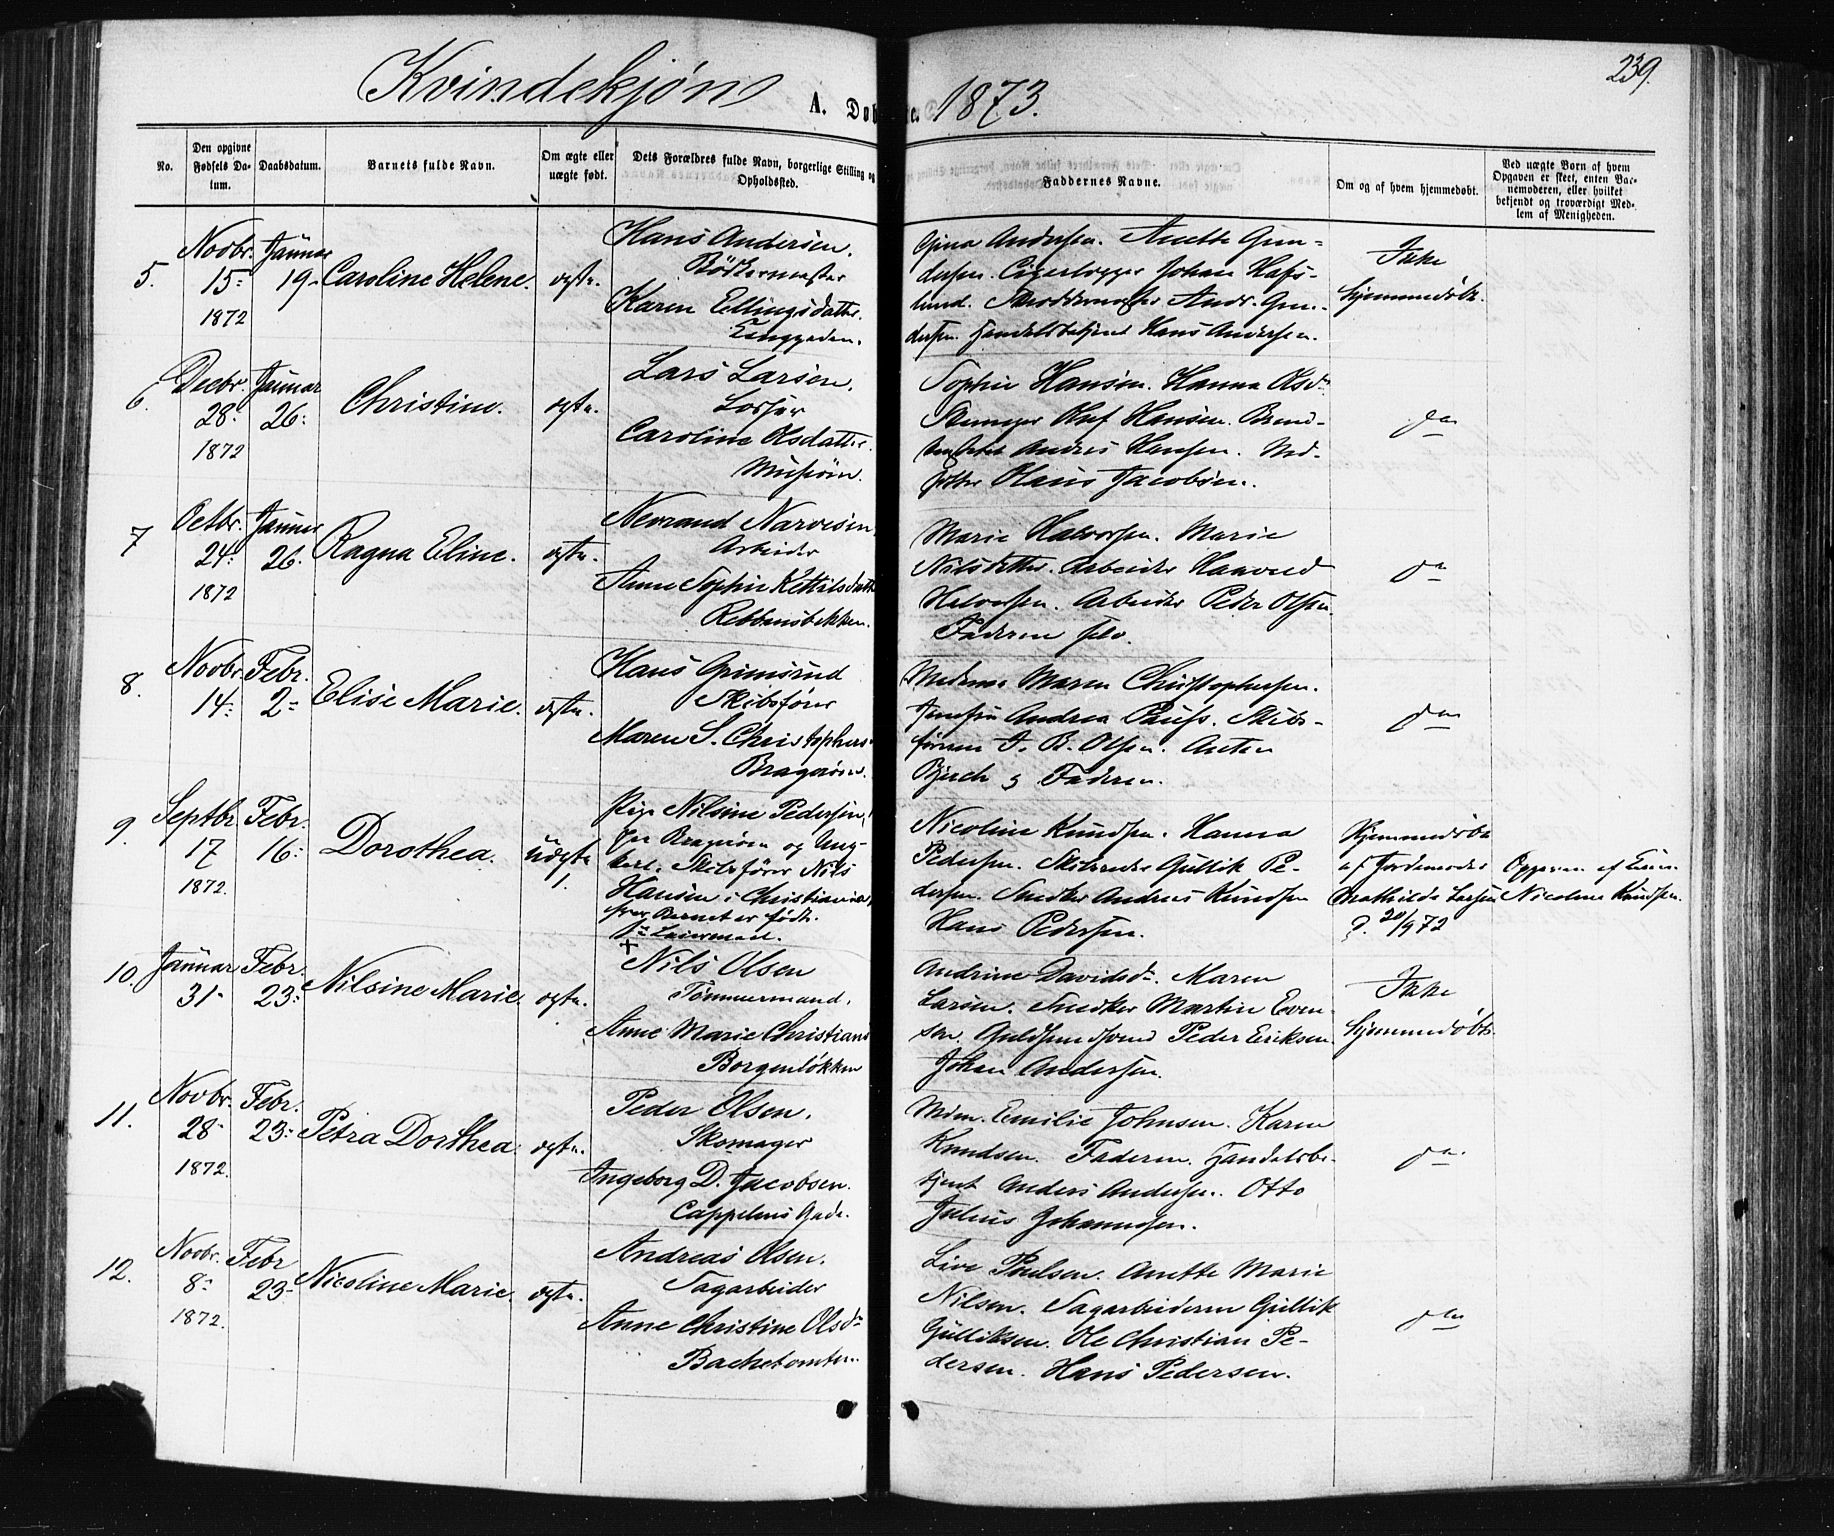 Kvindekjøn
A. Døbte. 1873.
239.
No.
Den opgivne Fødsels Datum.
Daabsdatum.
Barnets fulde Navn.
Om ægte eller uægte født.
Dets Forældres fulde Navn, borgerlige Stilling og Opholdssted.
Faddernes Navne.
Om og af hvem hjemmedøbt.
Ved uægte Børn af hvem Opgaven er skeet, enten Barnemoderen, eller hvilket bekjendt og troværdigt Medlem af Menigheden.
5. Novbr. 15 1872
Januar 19
Caroline Helene.
ægte.
Hans Andersen.
Bødkermester
Karen Ellingsdatter.
Gina Andersen. Anette Gun-
dersen. Johan Hafs-
lund. Andr. Gun-
dersen. Handelsbetjent Hans Andersen.
Ikke
hjemmedøbt.
6. Decbr. 28 1872
Januar 26
Christine.
ægte.
Lars Larsen.
Losser
Caroline Olsdatter.
Sophie Hansen. Hanna Olsd.
Olaf Hansen. Brand-
Andres Hansen.
Hans Jacobsen.
do
7 Octbr. 24 1872
Januar 26.
Ragna Eline.
ægte.
Nevrand Narvesen,
Arbeider
Anne Sophie Kettilsdatter
Rebbansbekken.
Marie Halvorsen. Marie
Nilsdatter. Arbeider Haavard
Halvorsen. Arbeider Peder Olsen.
Faderen selv.
do
8. Novbr. 14
Febr. 2
Elise Marie.
ægte.
Hans Grimsrud
Skibsfører
Maren S. Christophers.
Bragerøen.
Madame Maren Christophersen.
Andrea Paus. Skibs-
førerne J. B. Olsen. Anton
Bjerch & Faderen.
do
9. Septbr 17 1872.
Febr. 16
Dorothea.
uægte
1.
Pige Nilsine Pedersen,
Bragerøen og Ung-
karl, Skibsfører Nils
Hansen i Christiania,
hvor Barnet er født.
1ste Leiermaal.
Nicoline Knudsen. Hanna
Pedersen. Gullik Pe-
dersen. Snedker Andreas Knudsen
Hans Pedersen.
Hjemmedøbt
af Jordemoder
Mathilde Larsen
d. 20/9 72
Opgaven af
Nicoline Knudsen.
10. Januar 31
Febr. 23
Nilsine Marie.
ægte.
+ Nils Olsen
Tømmermand.
Anne Marie Christians
Borgenløkken
Andrine Davidsd. Maren
Larsen. Snedker Martin Even-
sen. Guldsmedsvend Peder Eriksen
Johan Andersen.
Ikke
hjemmedøbt.
11. Novbr. 28 1872.
Febr. 23
Petra Dorthea.
ægte.
Peder Olsen.
Skomager
Ingeborg D. Jacobsen.
Cappelens Gade.
Mdm. Emilie Johnsen. Karen
Knudsen. Faderen. Handelsbe-
tjent Anders Andersen. Otto
Julius Johannesen.
do
12. Novbr. 8 1872.
Febr 23
Nicoline Marie.
ægte.
Andreas Olsen.
Sagarbeider
Anne Christine Olsd
Bachetomten.
Live Poulsen. Anette Marie
Nilsen. Sagarbeiderne Gullik
Gulliksen. Ole Christian Pe-
dersen. Hans Pedersen.
do